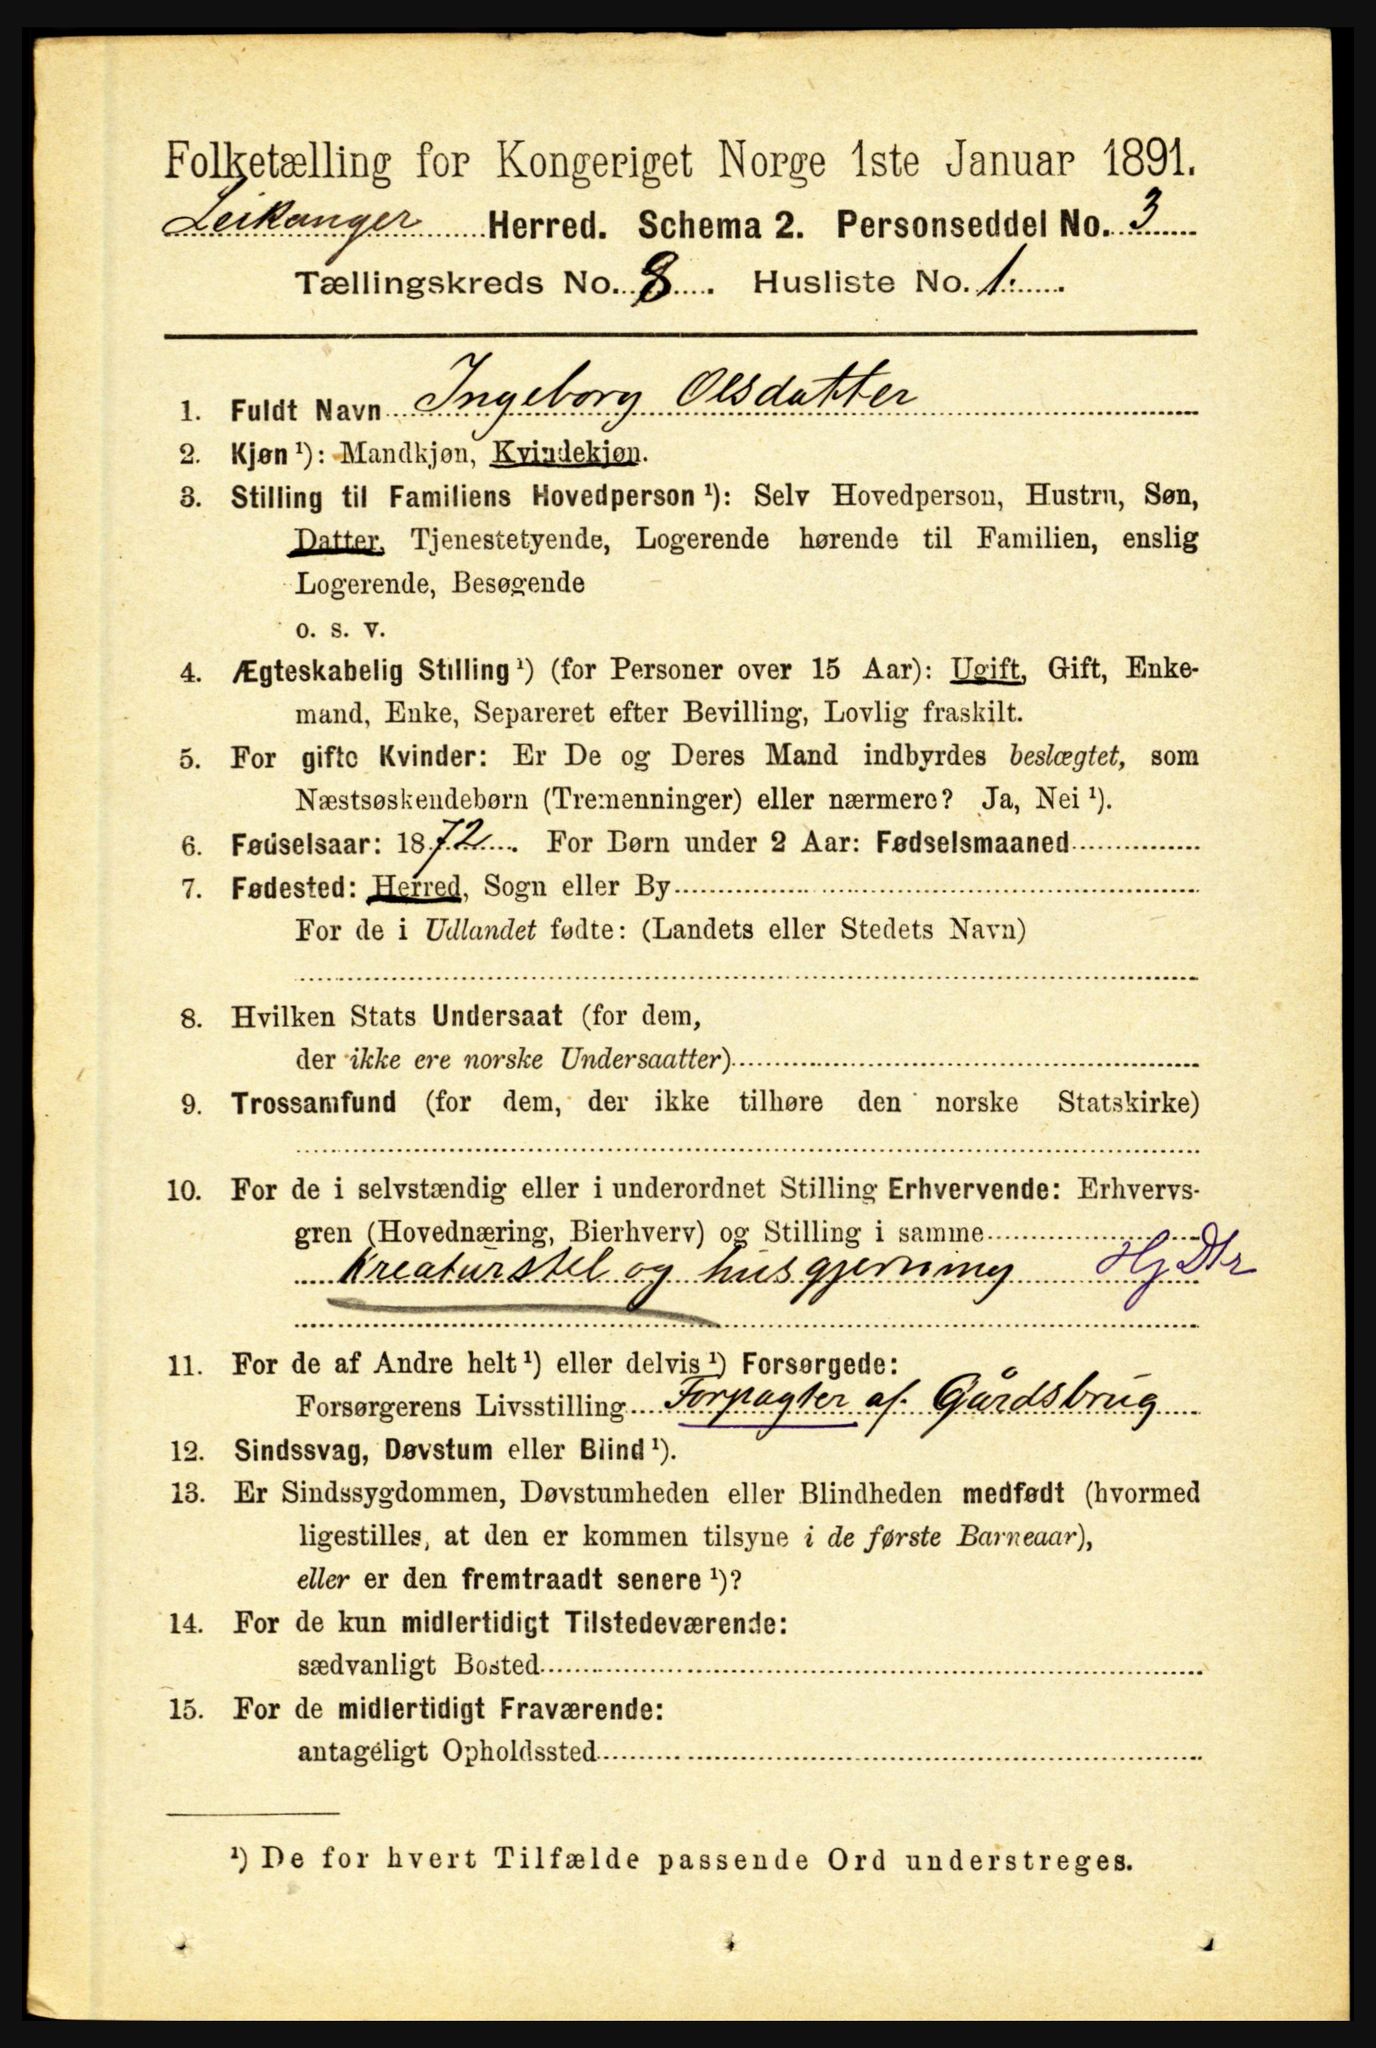 Folketælling for Kongeriget Norge 1ste Januar 1891.
Leikanger Herred. Schema 2. Personseddel No. 3
Tællingskreds No. 8. Husliste No. 1.
1. Fuldt Navn Ingeborg Olsdatter
2. Kjøn ¹): Mandkjøn, Kvindekjøn.
3. Stilling til Familiens Hovedperson ¹): Selv Hovedperson, Hustru, Søn,
Datter, Tjenestetyende, Logerende hørende til Familien, enslig
Logerende, Besøgende
o. s. v.
4. Ægteskabelig Stilling ¹) (for Personer over 15 Aar): Ugift, Gift, Enke-
mand, Enke, Separeret efter Bevilling, Lovlig fraskilt.
5. For gifte Kvinder: Er De og Deres Mand indbyrdes beslægtet, som
Næstsøskendebørn (Tremenninger) eller nærmere? Ja, Nei ¹).
6. Fødselsaar: 1872. For Børn under 2 Aar: Fødselsmaaned
7. Fødested: Herred, Sogn eller By
For de i Udlandet fødte: (Landets eller Stedets Navn)
8. Hvilken Stats Undersaat (for dem,
der ikke ere norske Undersaatter)
9. Trossamfund (for dem, der ikke tilhøre den norske Statskirke)
10. For de i selvstændig eller i underordnet Stilling Erhvervende: Erhvervs-
gren (Hovednæring, Bierhverv) og Stilling i samme
Kreaturstel og husgjerning Hj Dtr
11. For de af Andre helt ¹) eller delvis ¹) Forsørgede:
Forsørgerens Livsstilling Forpagter af Gårdsbrug
12. Sindssvag, Døvstum eller Blind ¹).
13. Er Sindssygdommen, Døvstumheden eller Blindheden medfødt (hvormed
ligestilles, at den er kommen tilsyne i de første Barneaar),
eller er den fremtraadt senere ¹)?
14. For de kun midlertidigt Tilstedeværende:
sædvanligt Bosted
15. For de midlertidigt Fraværende:
antageligt Opholdssted
¹) De for hvert Tilfælde passende Ord understreges.